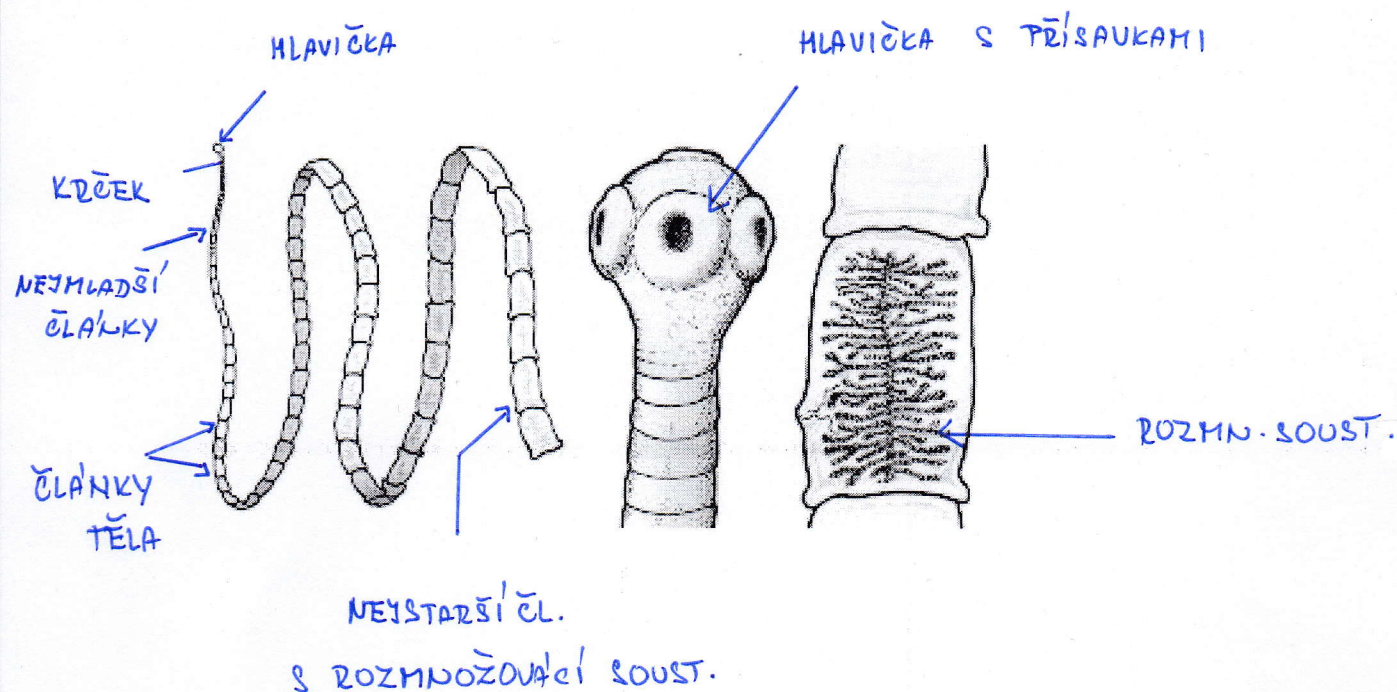 HLAVIČKA
HLAVIČKA S PŘÍSAVKAMI
KRČEK
NEJMLADŠÍ
ČLÁNKY
ČLÁNKY
TĚLA
ROZMN. SOUST.
NEJSTARŠÍ ČL.
S ROZMNOŽOVÁCÍ SOUST.